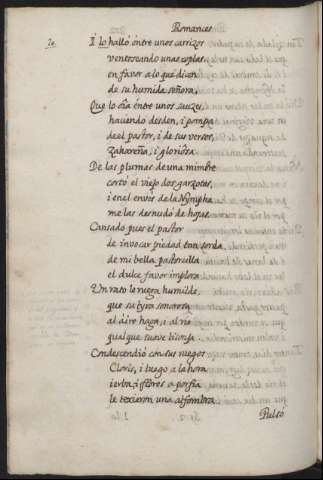 Romances
20.
I lo halló entre unos carrizos
venteseando unas coplas
en favor a lo que dicen
de su humida señora,
Que lo oia entre unos sauzes
haciendo desden, i pompa
de el pastor, i de sus versos,
Zahareña, i gloriosa.
De las plumas de una mimbre
cortó el viejo dos garzotas,
i en el envés de la Nympha
me las desnudó de hojas.
Cansado pues el pastor
de invocar piedad tan sorda,
de mi bella pastorcilla
el dulce favor implora.
Un rato le ruega humilde,
que su tyorba sonorosa
al aire haga, i al rio
qualque suave lisonja
Condescendió con sus ruegos
Cloris, i luego a la hora
ierba, i flores a porfia
le texieron una alfombra
Pulsó